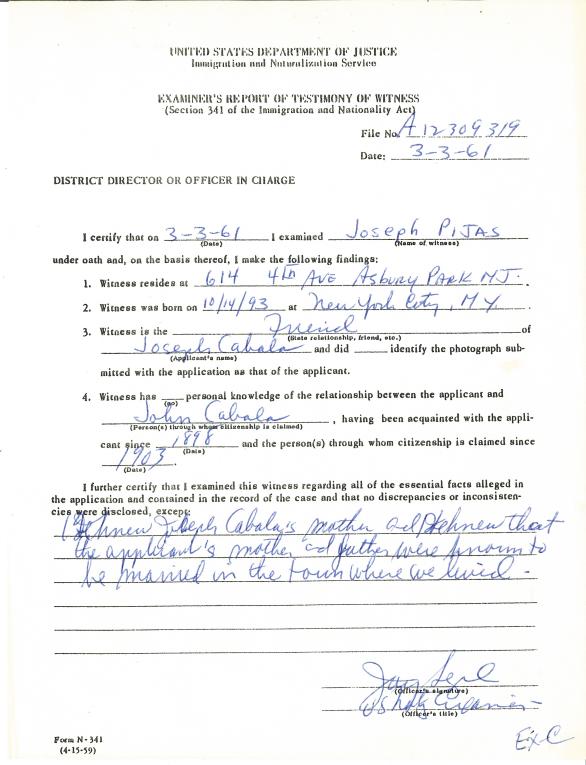 UNITED STATES DEPARTMENT OF JUSTICE
Immigration and Naturalization Service
EXAMINER'S REPORT OF TESTIMONY OF WITNESS
(Section 341 of the Immigration and Nationality Act)
File No. A 12 309 319
Date: 3-3-61
DISTRICT DIRECTOR OR OFFICER IN CHARGE
I certify that on 3-3-61 I examined Joseph PIJAS
(Date) (Name of witness)
under oath and, on the basis thereof, I make the following findings:
1. Witness resides at 614 4th AVE ASBURY PARK NJ.
2. Witness was born on 10/14/93 at New York City, N.Y.
3. Witness is the Friend of
(State relationship, friend, etc.)
Joseph Cabala and did identify the photograph sub-
(Applicant's name)
mitted with the application as that of the applicant.
4. Witness has personal knowledge of the relationship between the applicant and
(no)
John Cabala, having been acquainted with the appli-
(Person(s) through whom citizenship is claimed)
cant since 1898 and the person(s) through whom citizenship is claimed since
(Date)
1903.
(Date)
I further certify that I examined this witness regarding all of the essential facts alleged in
the application and contained in the record of the case and that no discrepancies or inconsisten-
cies were disclosed, except:
I knew Joseph Cabala's mother ad I knew that
the applicant's mother ad father were known to
be married in the town where we lived.
(Officer's signature)
(Officer's title)
Form N-341
(4-15-59)
Ex C